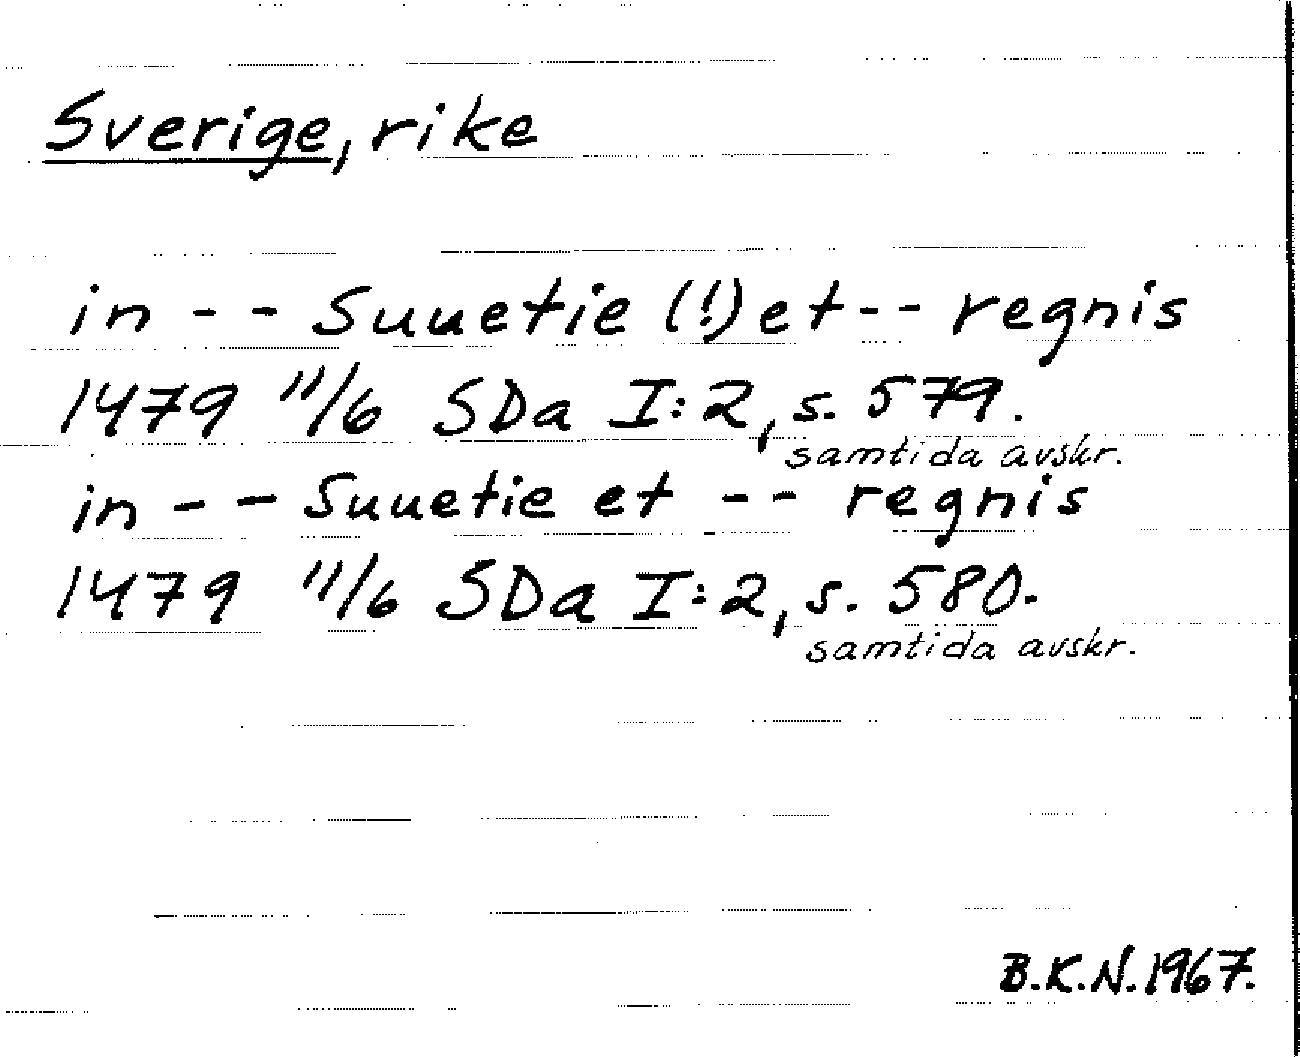 Sverige, rike
in - - Suuetie (!) et - - regnis
1479 11/6 SDa I:2, s. 579.
samtida avskr.
in - - Suuetie et - - regnis
1479 11/6 SDa I:2, s. 580.
samtida avskr.
B.K.N. 1967.